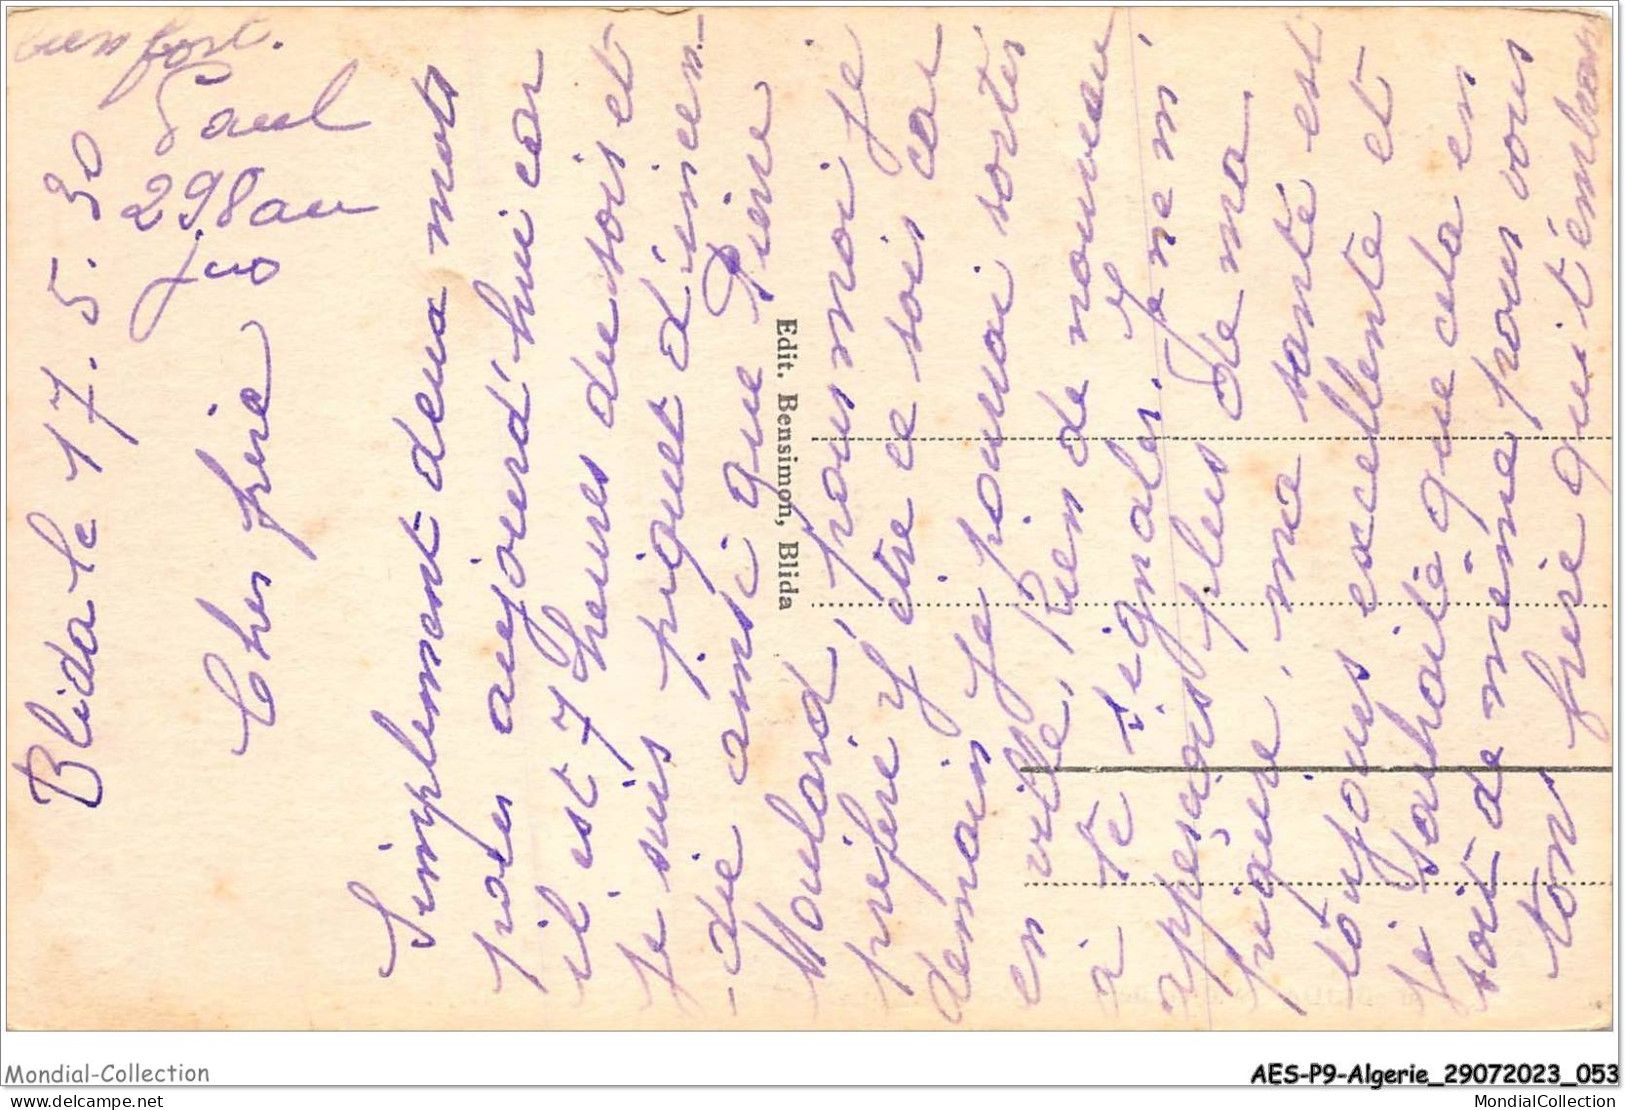 Blida le 17.5.30
Cher frère
Simplement deux mots
pour aujourd'hui car
il est 7 heures du soir et
je suis piquet d'incen-
-die ainsi que Pierre
Moulard, pour moi je
préfère y être ce soir car
demain je pourrai sortir
en ville, Rien de nouveau
à te signaler. Je ne m'
apperçois plus de ma
piqûre, ma santé est
toujours excellente et
je souhaite que cela en
soit de même pour vous
ton frère qui t'embrasse
bien fort.
Paul
298 au
jus
Edit. Bensimon, Blida
Mondial-Collection
AES-P9-Algerie_29072023_053
delcampe.net
MondialCollection